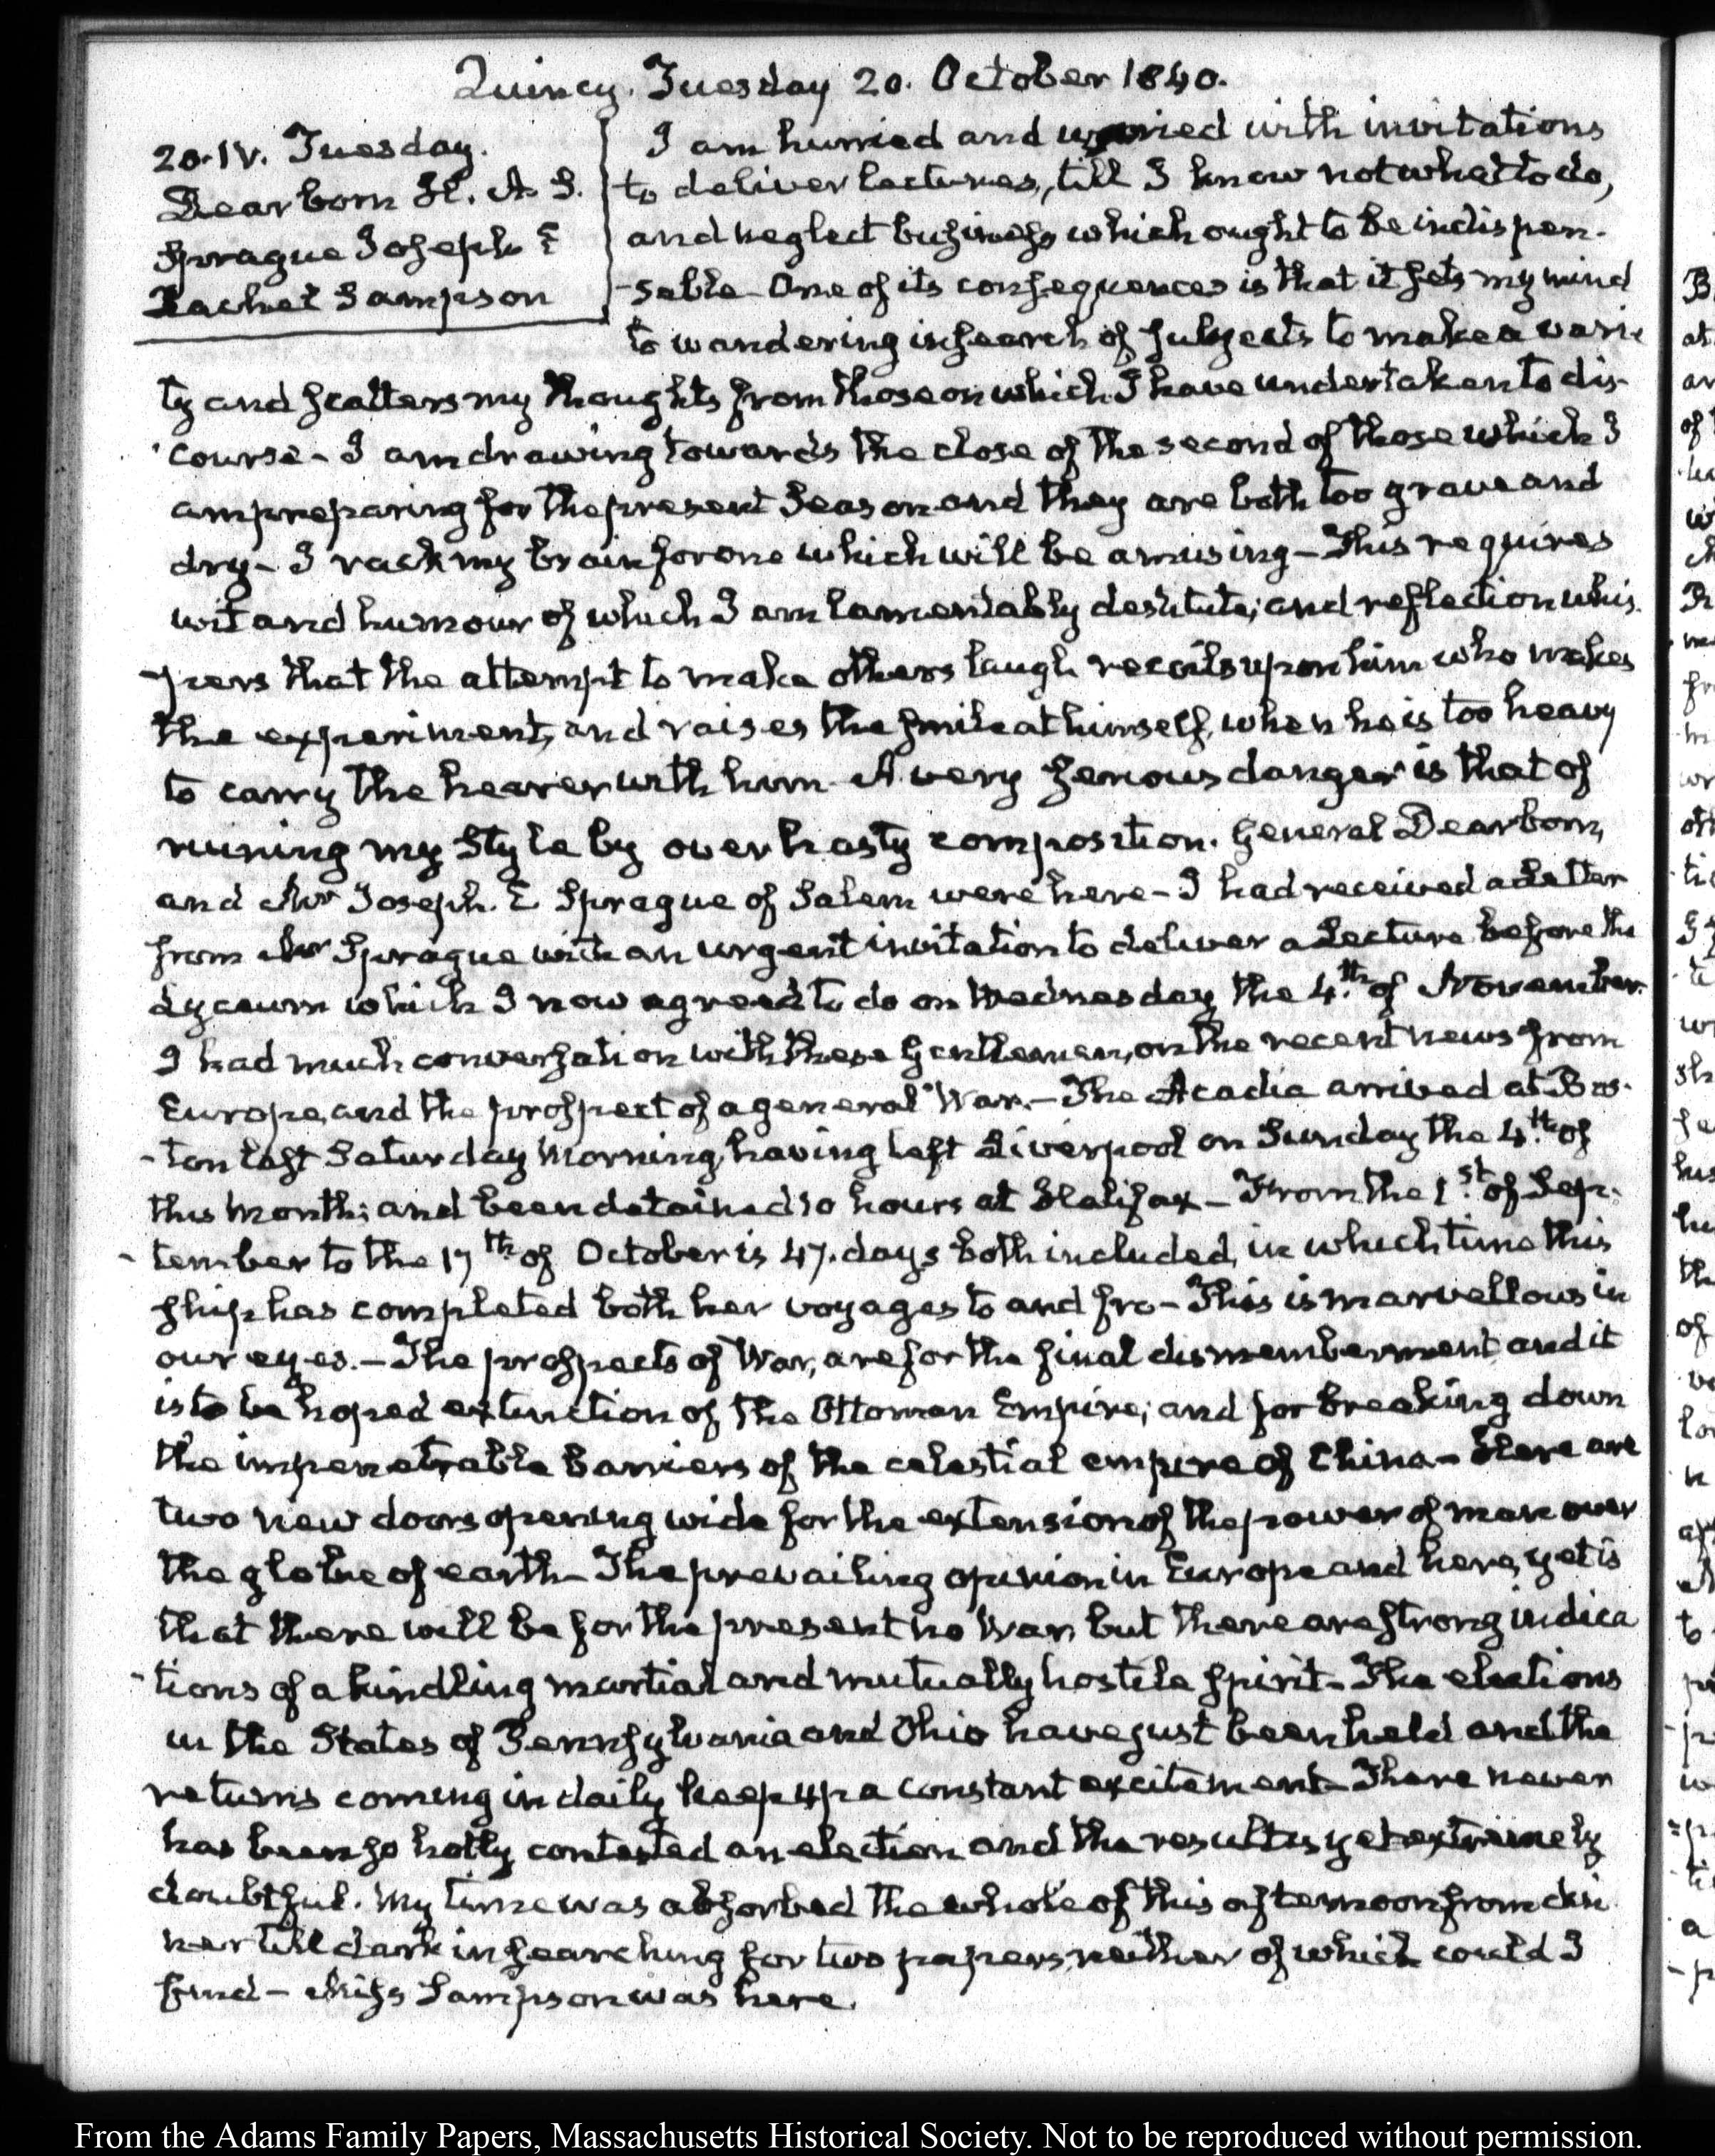 Quincy. Tuesday 20. October 1840.
20. IV. Tuesday.
Dearborn H. A. S.
Sprague Joseph E
Rachel Sampson
I am hurried and worried with invitations
to deliver lectures, till I know not what to do,
and neglect business which ought to be indispen-
-sable– One of its consequences is that it sets my mind
to wandering in search of subjects to make a varie
ty and scatters my thoughts from those on which I have undertaken to dis-
course– I am drawing towards the close of the second of those which I
am preparing for the present season and they are both too grave and
dry– I rack my brain for one which will be amusing– This requires
wit and humour of which I am lamentably destitute; and reflection whis
-pers that the attempt to make others laugh recoils upon him who makes
the experiment, and raises the smile at himself, when he is too heavy
to carry the hearer with him. A very serious danger is that of
ruining my style by over hasty composition. General Dearborn,
and Mr Joseph. E Sprague of Salem were here– I had received a Letter
from Mr Sprague with an urgent invitation to deliver a Lecture before the
Lyceum which I now agreed to do on Wednesday the 4.th of November.
I had much conversation with these Gentlemen, on the recent news from
Europe, and the prospect of a general War.– The Acadia arrived at Bos-
-ton last Saturday Morning, having left Liverpool on Sunday the 4.th of
this Month; and been detained 10 hours at Halifax– From the 1.st of Sep-
-tember to the 17th of October is 47. days both included, in which time this
ship has completed both her voyages to and fro– This is marvellous in
our eyes.– The prospects of War, are for the final dismemberment and it
is to be hoped extinction of the Ottoman Empire; and for breaking down
the impenetrable barriers of the celestial empire of China– Here are
two new doors opening wide for the extension of the power of man over
the globe of earth– The prevailing opinion in Europe and here, yet is
that there will be for the present no War, but there are strong indica
-tions of a kindling martial and mutually hostile spirit– The elections
in the States of Pennsylvania and Ohio have just been held and the
returns coming in daily keep up a constant excitement– There never
has been so hotly contested an election and the result is yet extremely
doubtful. My time was absorbed the whole of this afternoon from din
ner till dark in searching for two papers, neither of which could I
find– Miss Sampson was here.
From the Adams Family Papers, Massachusetts Historical Society. Not to be reproduced without permission.